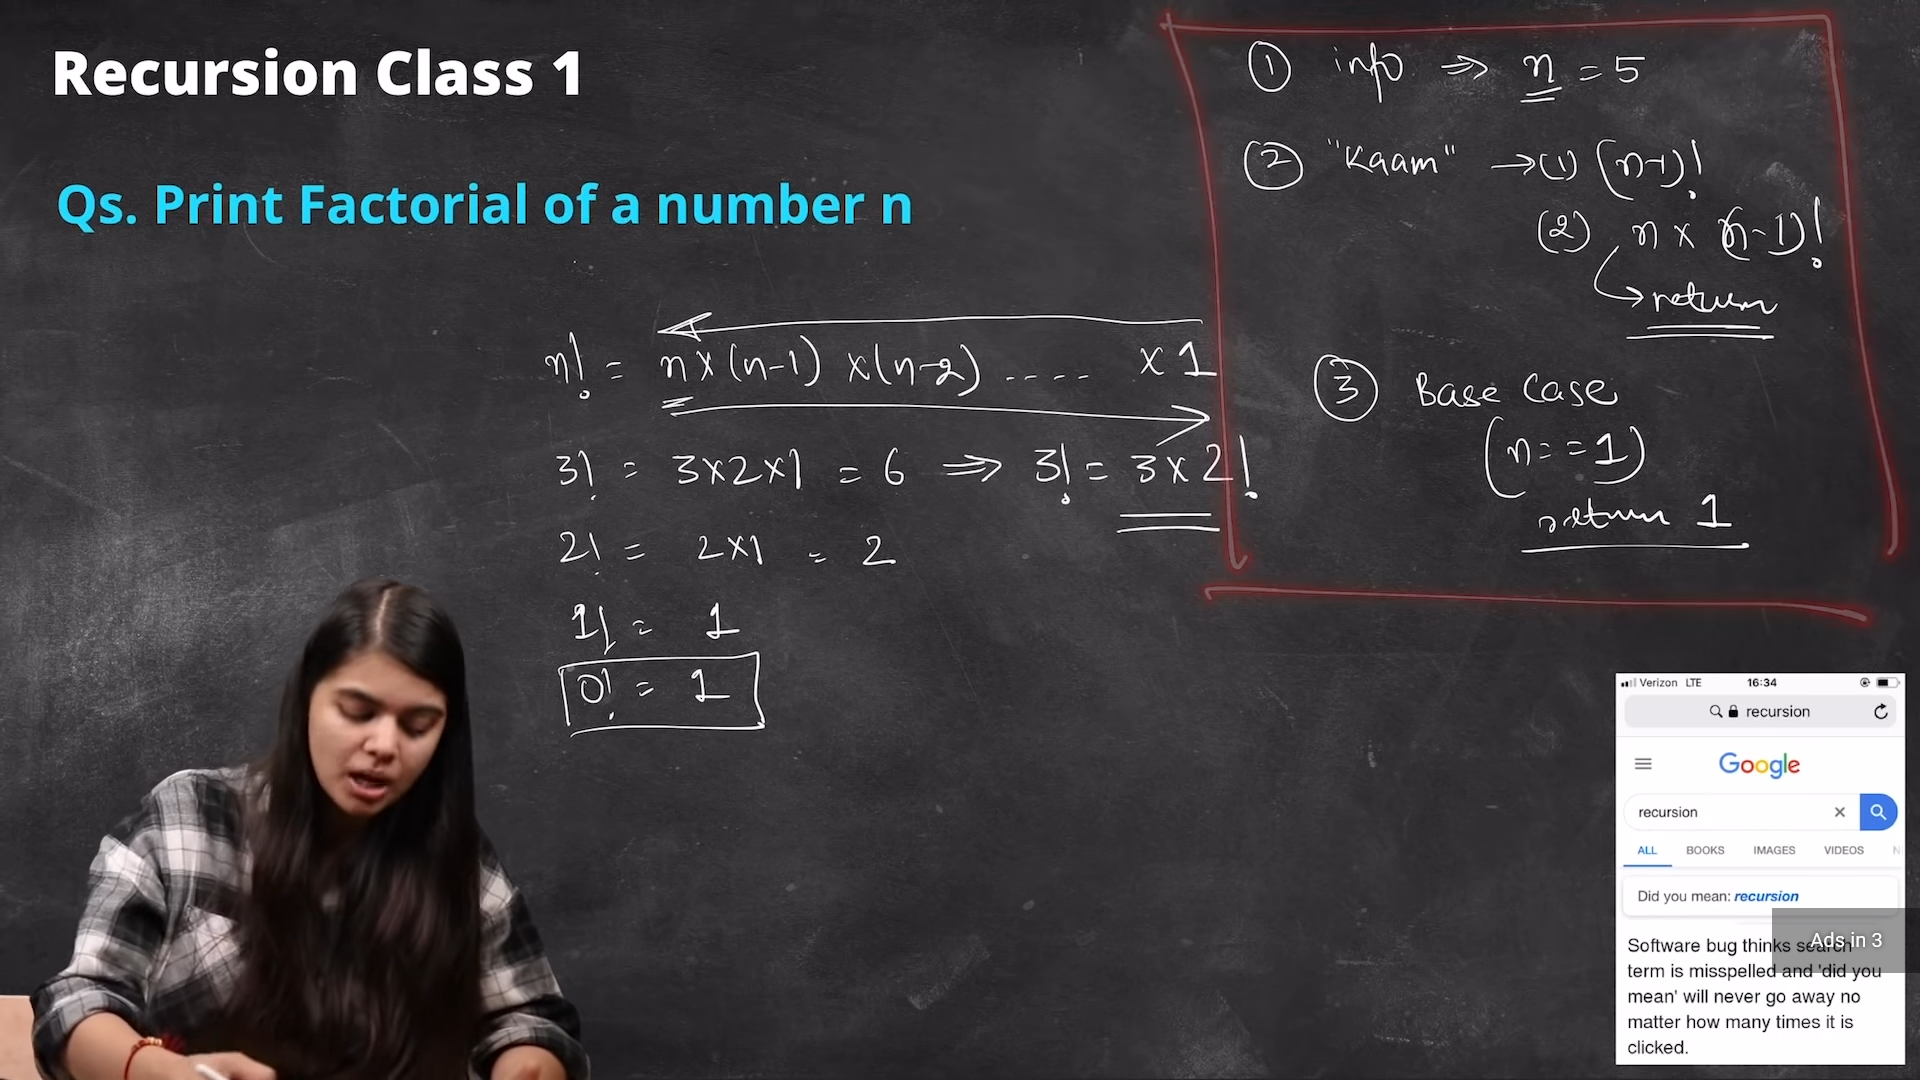 Recursion Class 1
Qs. Print Factorial of a number n
n! = n x (n-1) x (n-2) .... x 1
3! = 3x2x1 = 6 ⇒ 3! = 3 x 2!
2! = 2x1 = 2
1! = 1
0! = 1
① info ⇒ n = 5
② "Kaam" → (1) (n-1)!
(2) n x (n-1)!
→ return
③ Base Case
(n==1)
return 1
Verizon LTE 16:34
recursion
Google
recursion
ALL BOOKS IMAGES VIDEOS N
Did you mean: recursion
Ads in 3
Software bug thinks search
term is misspelled and 'did you
mean' will never go away no
matter how many times it is
clicked.